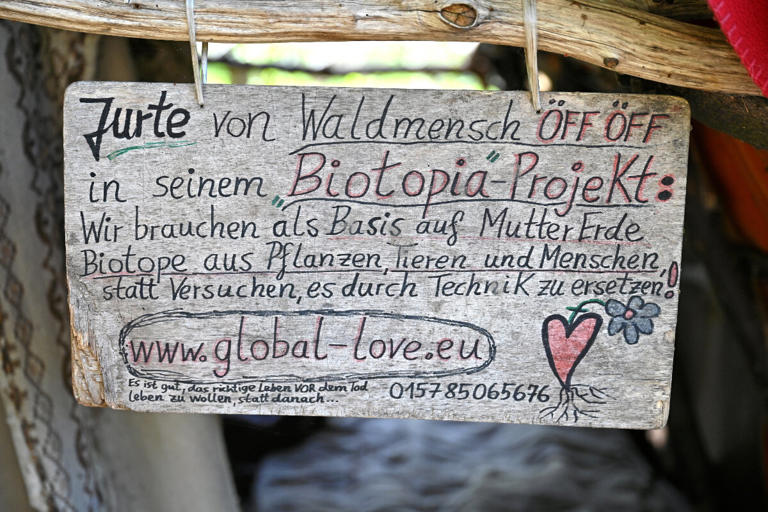 Jurte von Waldmensch ÖFF ÖFF
in seinem „Biotopia"-Projekt:
Wir brauchen als Basis auf Mutter Erde
Biotope aus Pflanzen, Tieren und Menschen,
statt Versuchen, es durch Technik zu ersetzen!
www.global-love.eu
Es ist gut, das richtige Leben VOR dem Tod
leben zu wollen, statt danach...
015785065676